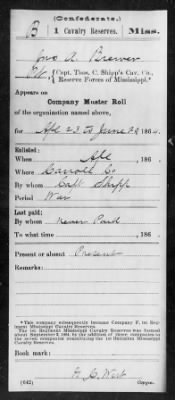 (Confederate.)
B | 1 Cavalry Reserves. | Miss.
Jno A. Brewer
Pvt, Capt. Thos. C. Shipp's Cav. Co.,
Reserve Forces of Mississippi.*
Appears on
Company Muster Roll
of the organization named above,
for Apl 23 to June 30, 1864.
Enlisted:
When Apl, 186 .
Where Carroll Co
By whom Capt Shipp
Period War
Last paid:
By whom Never Paid
To what time , 186 .
Present or absent Present
Remarks:
*This company subsequently became Company F, 1st Regiment Mississippi Cavalry Reserves.
The 1st Regiment Mississippi Cavalry Reserves was formed
about September 2, 1864, by the addition of three companies to
the seven companies constituting the 1st Battalion Mississippi
Cavalry Reserves.
Book mark:
H. C. West
(642) Copyist.